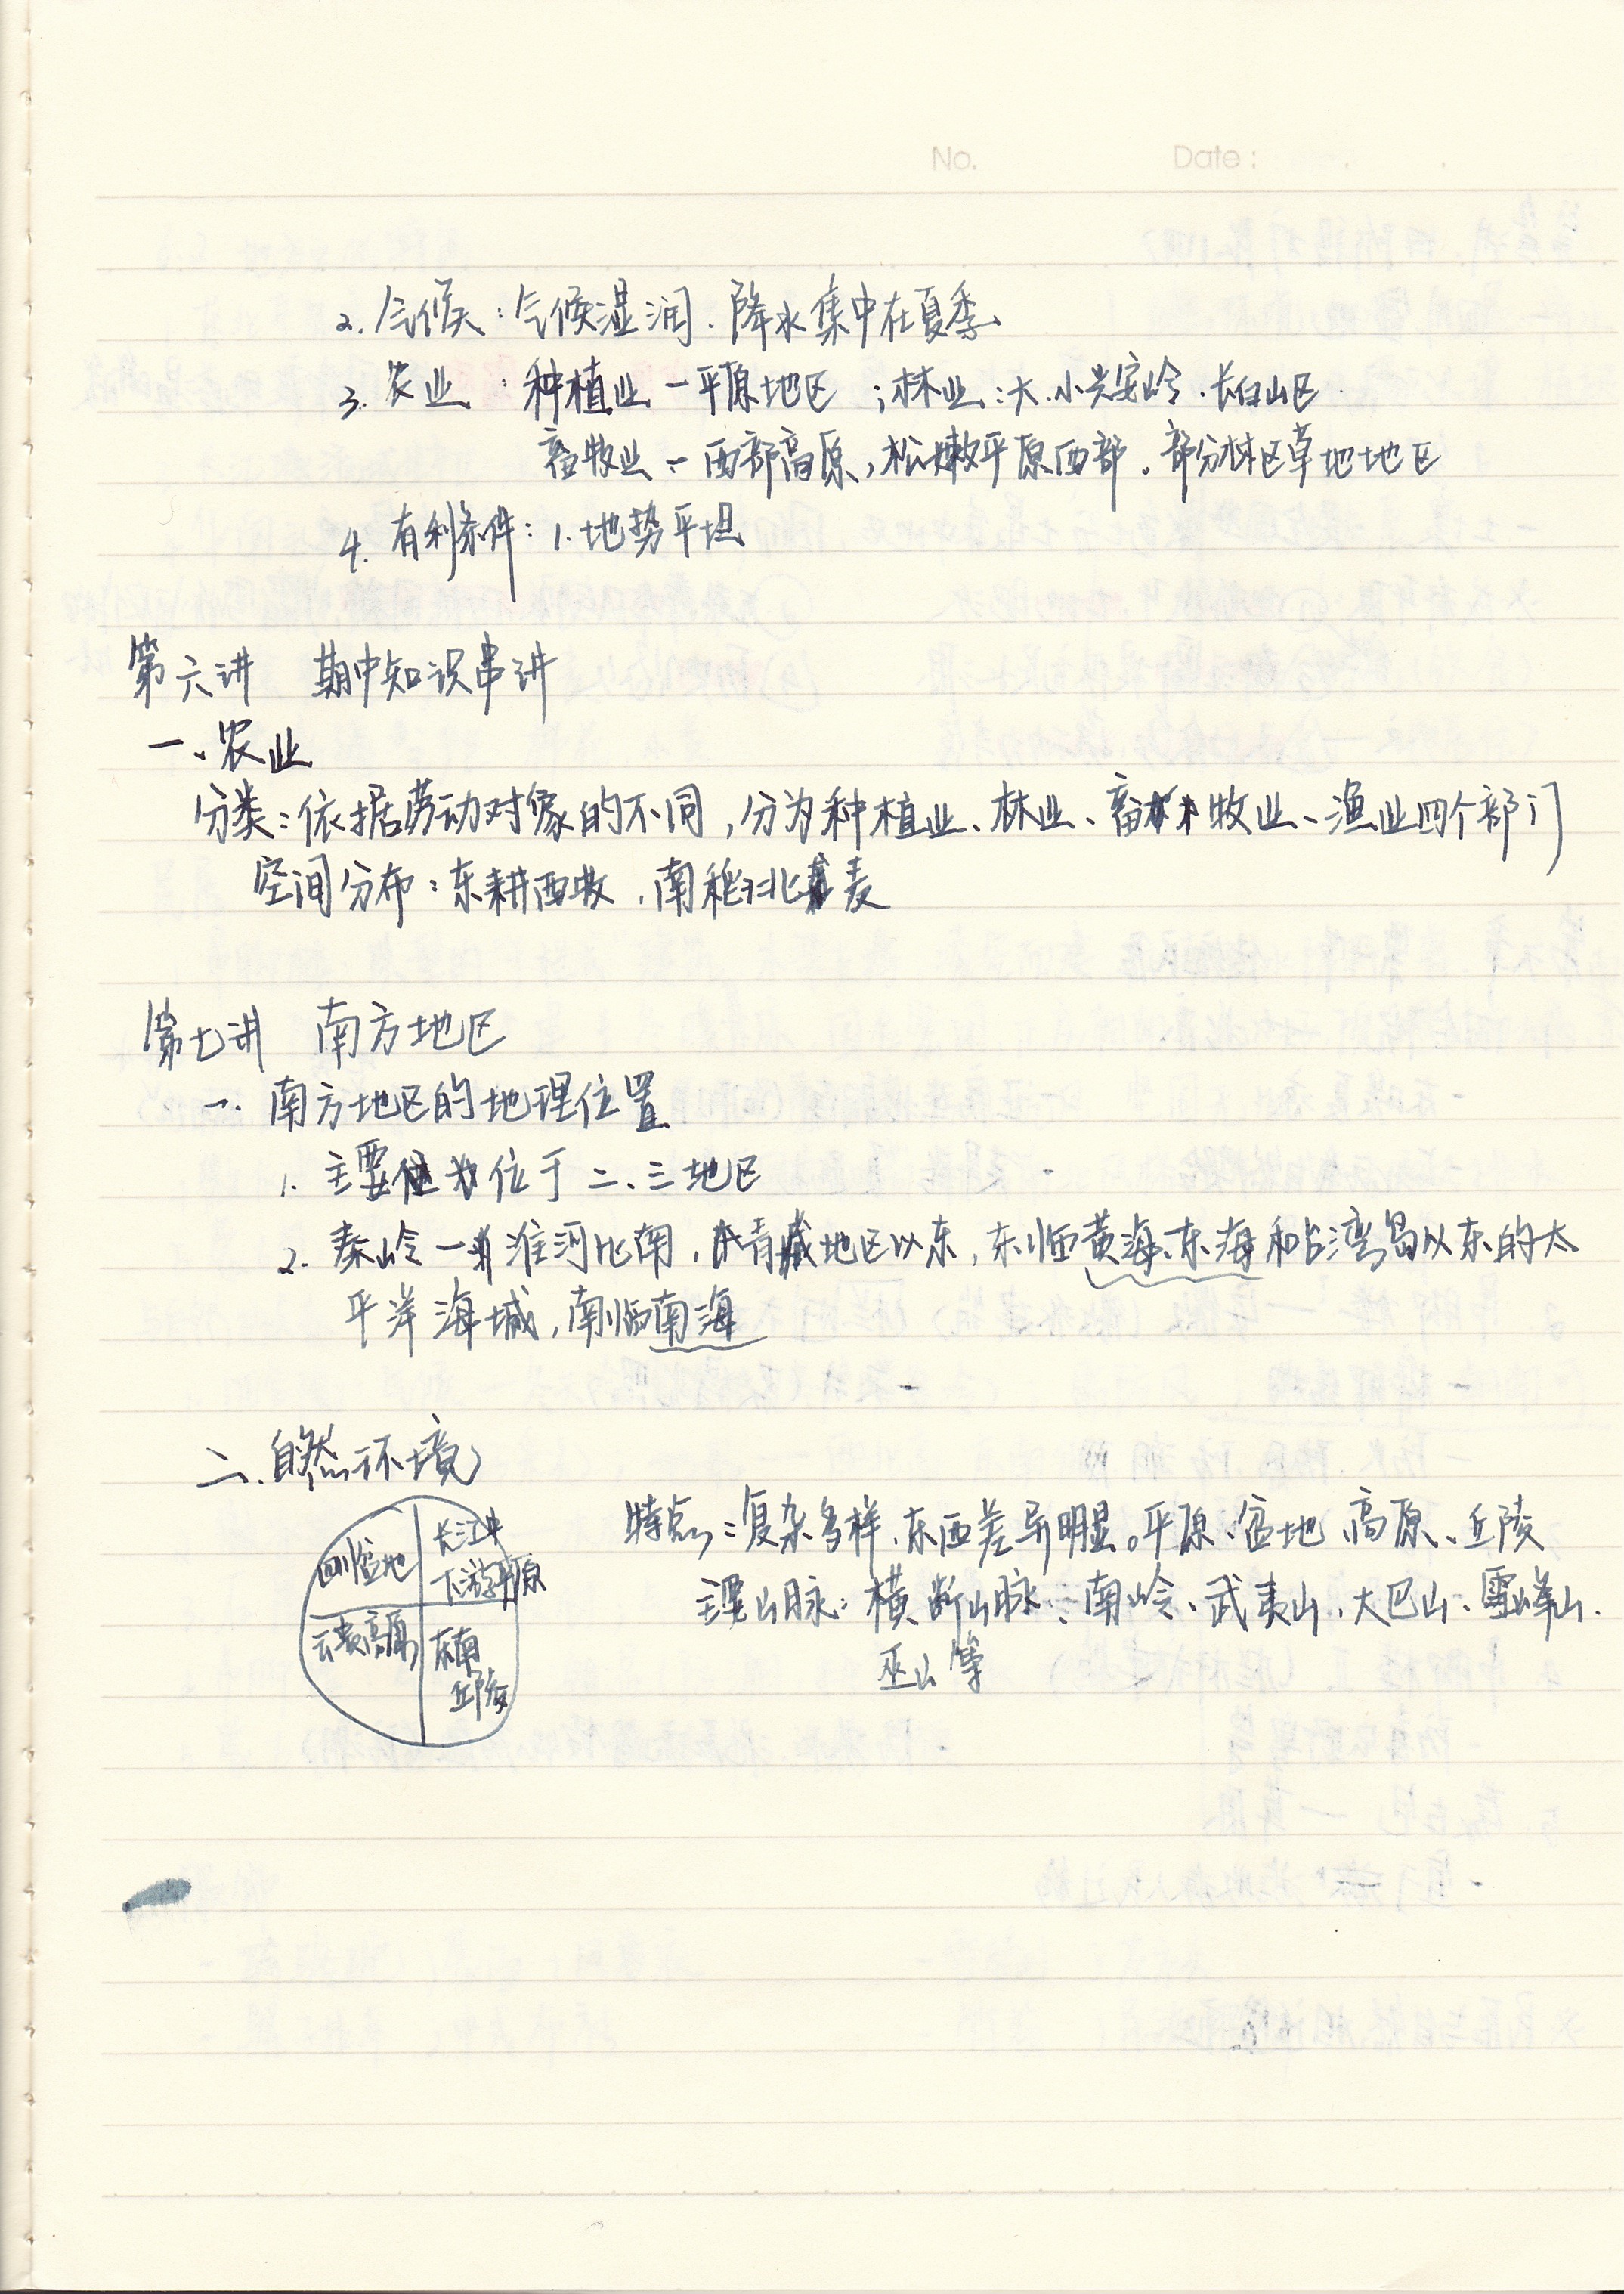 No. Date:
2. 气候：气候湿润、降水集中在夏季
3. 农业：种植业—平原地区；林业：大、小兴安岭、长白山区
畜牧业：西部高原，松嫩平原西部、部分林区草地地区
4. 有利条件：1. 地势平坦
第六讲 期中知识串讲
一、农业
分类：依据劳动对像的不同，分为种植业、林业、畜牧业、渔业四个部门
空间分布：东耕西牧，南稻北麦
第七讲 南方地区
一. 南方地区的地理位置
1. 主要位于二、三地区
2. 秦岭—淮河以南，青藏地区以东，东临黄海、东海和台湾岛以东的太
平洋海域，南临南海
二. 自然环境
四川盆地
长江中
下游平原
云贵高原
东南
丘陵
特点：复杂多样，东西差异明显。平原、盆地、高原、丘陵
主要山脉：横断山脉、南岭、武夷山、大巴山、雪峰山、
巫山等